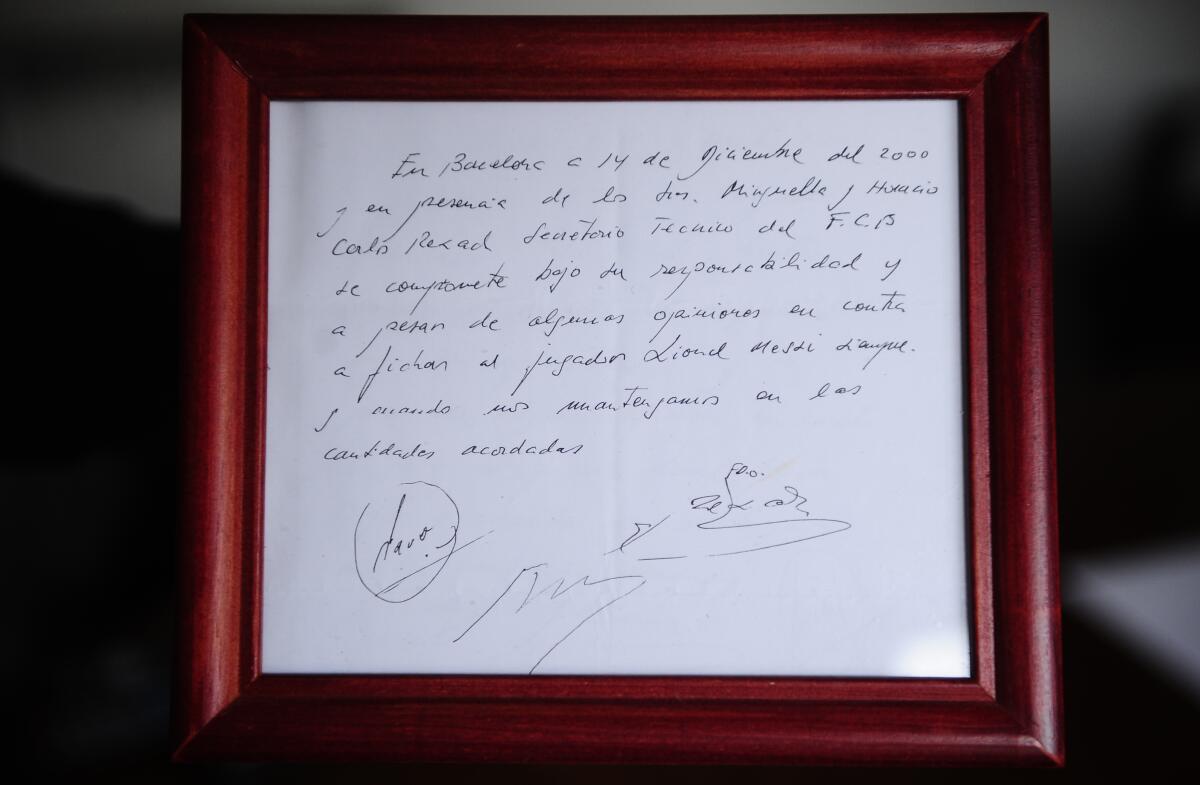 En Barcelona a 14 de Diciembre del 2000
y en presencia de los Srs. Minguella y Horacio
Carlos Rexach Secretario Tecnico del F.C.B
se compromete bajo su responsabilidad y
a pesar de algunas opiniones en contra
a fichar al jugador Lionel Messi siempre
y cuando nos mantengamos en las
cantidades acordadas
FDO.